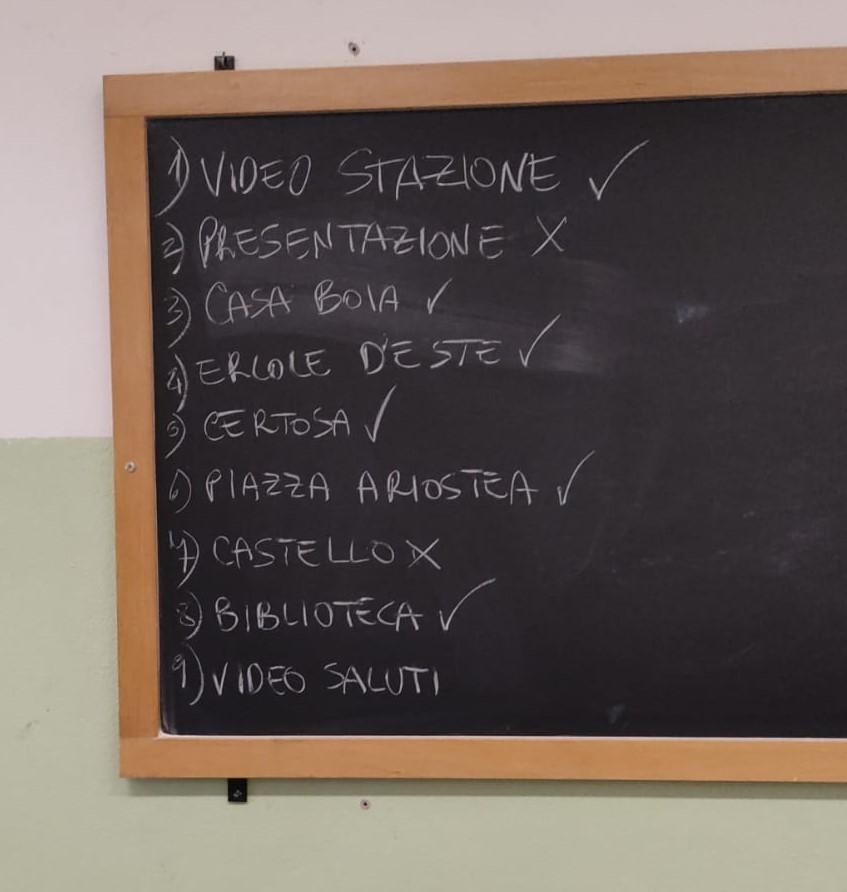 1) VIDEO STAZIONE ✓
2) PRESENTAZIONE X
3) CASA BOIA ✓
4) ERCOLE D'ESTE ✓
5) CERTOSA ✓
6) PIAZZA ARIOSTEA ✓
7) CASTELLO X
8) BIBLIOTECA ✓
9) VIDEO SALUTI